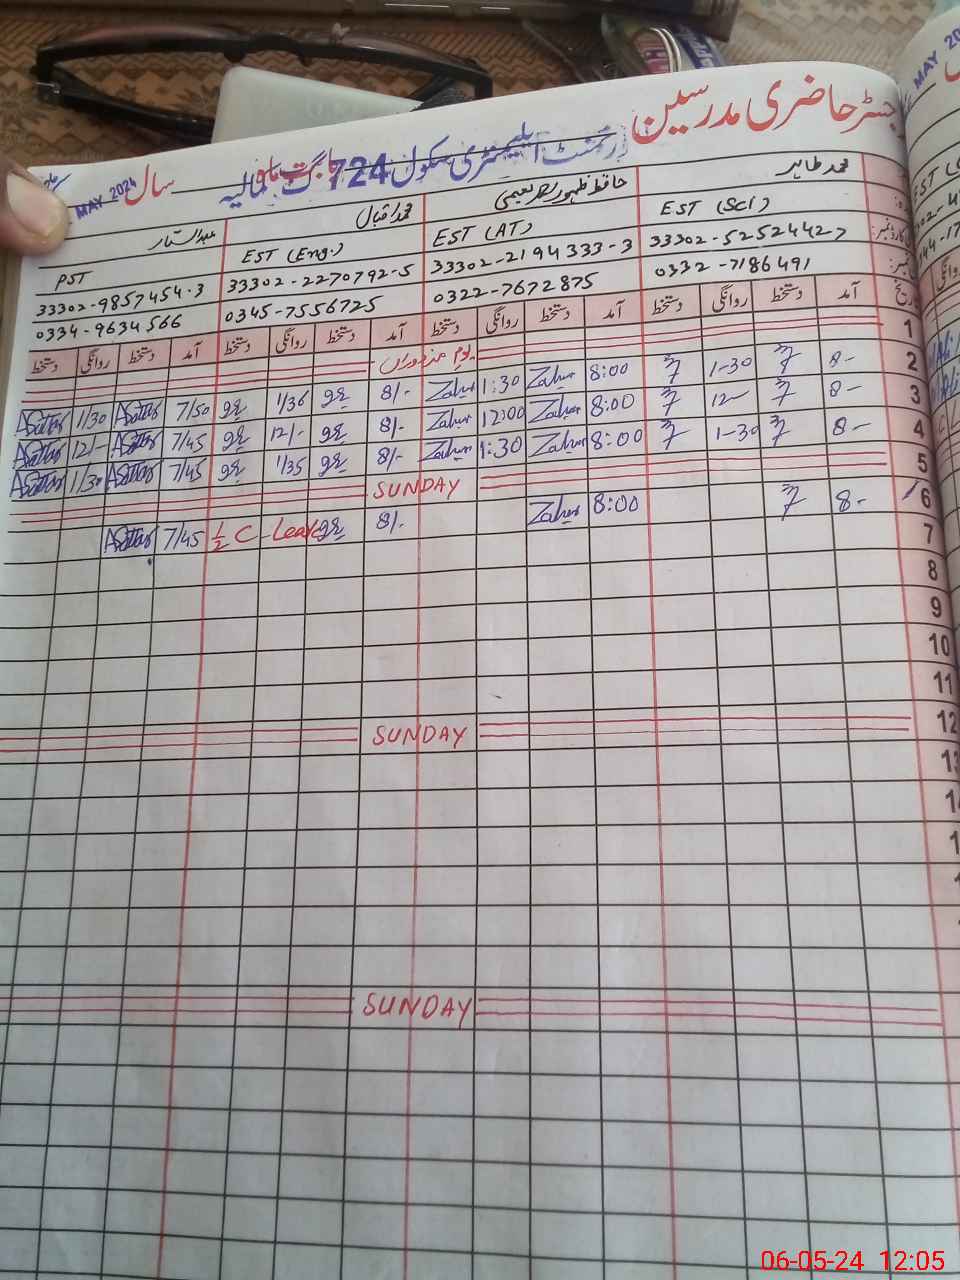 رجسٹر حاضری مدرسین
گورنمنٹ ایلیمنٹری سکول 724 گ ب
سال MAY 2024
محمد طاہر حافظ ظہور محمد اقبال عبدالستار
EST (Sci) EST (AT) EST (Eng.) PST
33302-5252442-7 33302-2194333-3 33302-2270792-5 33302-9857454-3
0332-7186491 0322-7672875 0345-7556725 0334-9634566
آمد دستخط روانگی دستخط آمد دستخط روانگی دستخط آمد دستخط روانگی دستخط آمد دستخط روانگی دستخط
1
2 8- 1-30 8:00 Zahur 1:30 Zahur 8/- 1/36 7/50 ASattar 1/30 ASattar
3 8- 12- 8:00 Zahur 12:00 Zahur 8/- 12/- 7/45 ASattar 12/- ASattar
4 8- 1-30 8:00 Zahur 1:30 Zahur 8/- 1/35 7/45 ASattar 1/30 ASattar
5 SUNDAY
6 8- 8:00 Zahur 8/- ½ C-Leave 7/45 ASattar
7
8
9
10
11
12 SUNDAY
13
SUNDAY
MAY 20
06-05-24 12:05